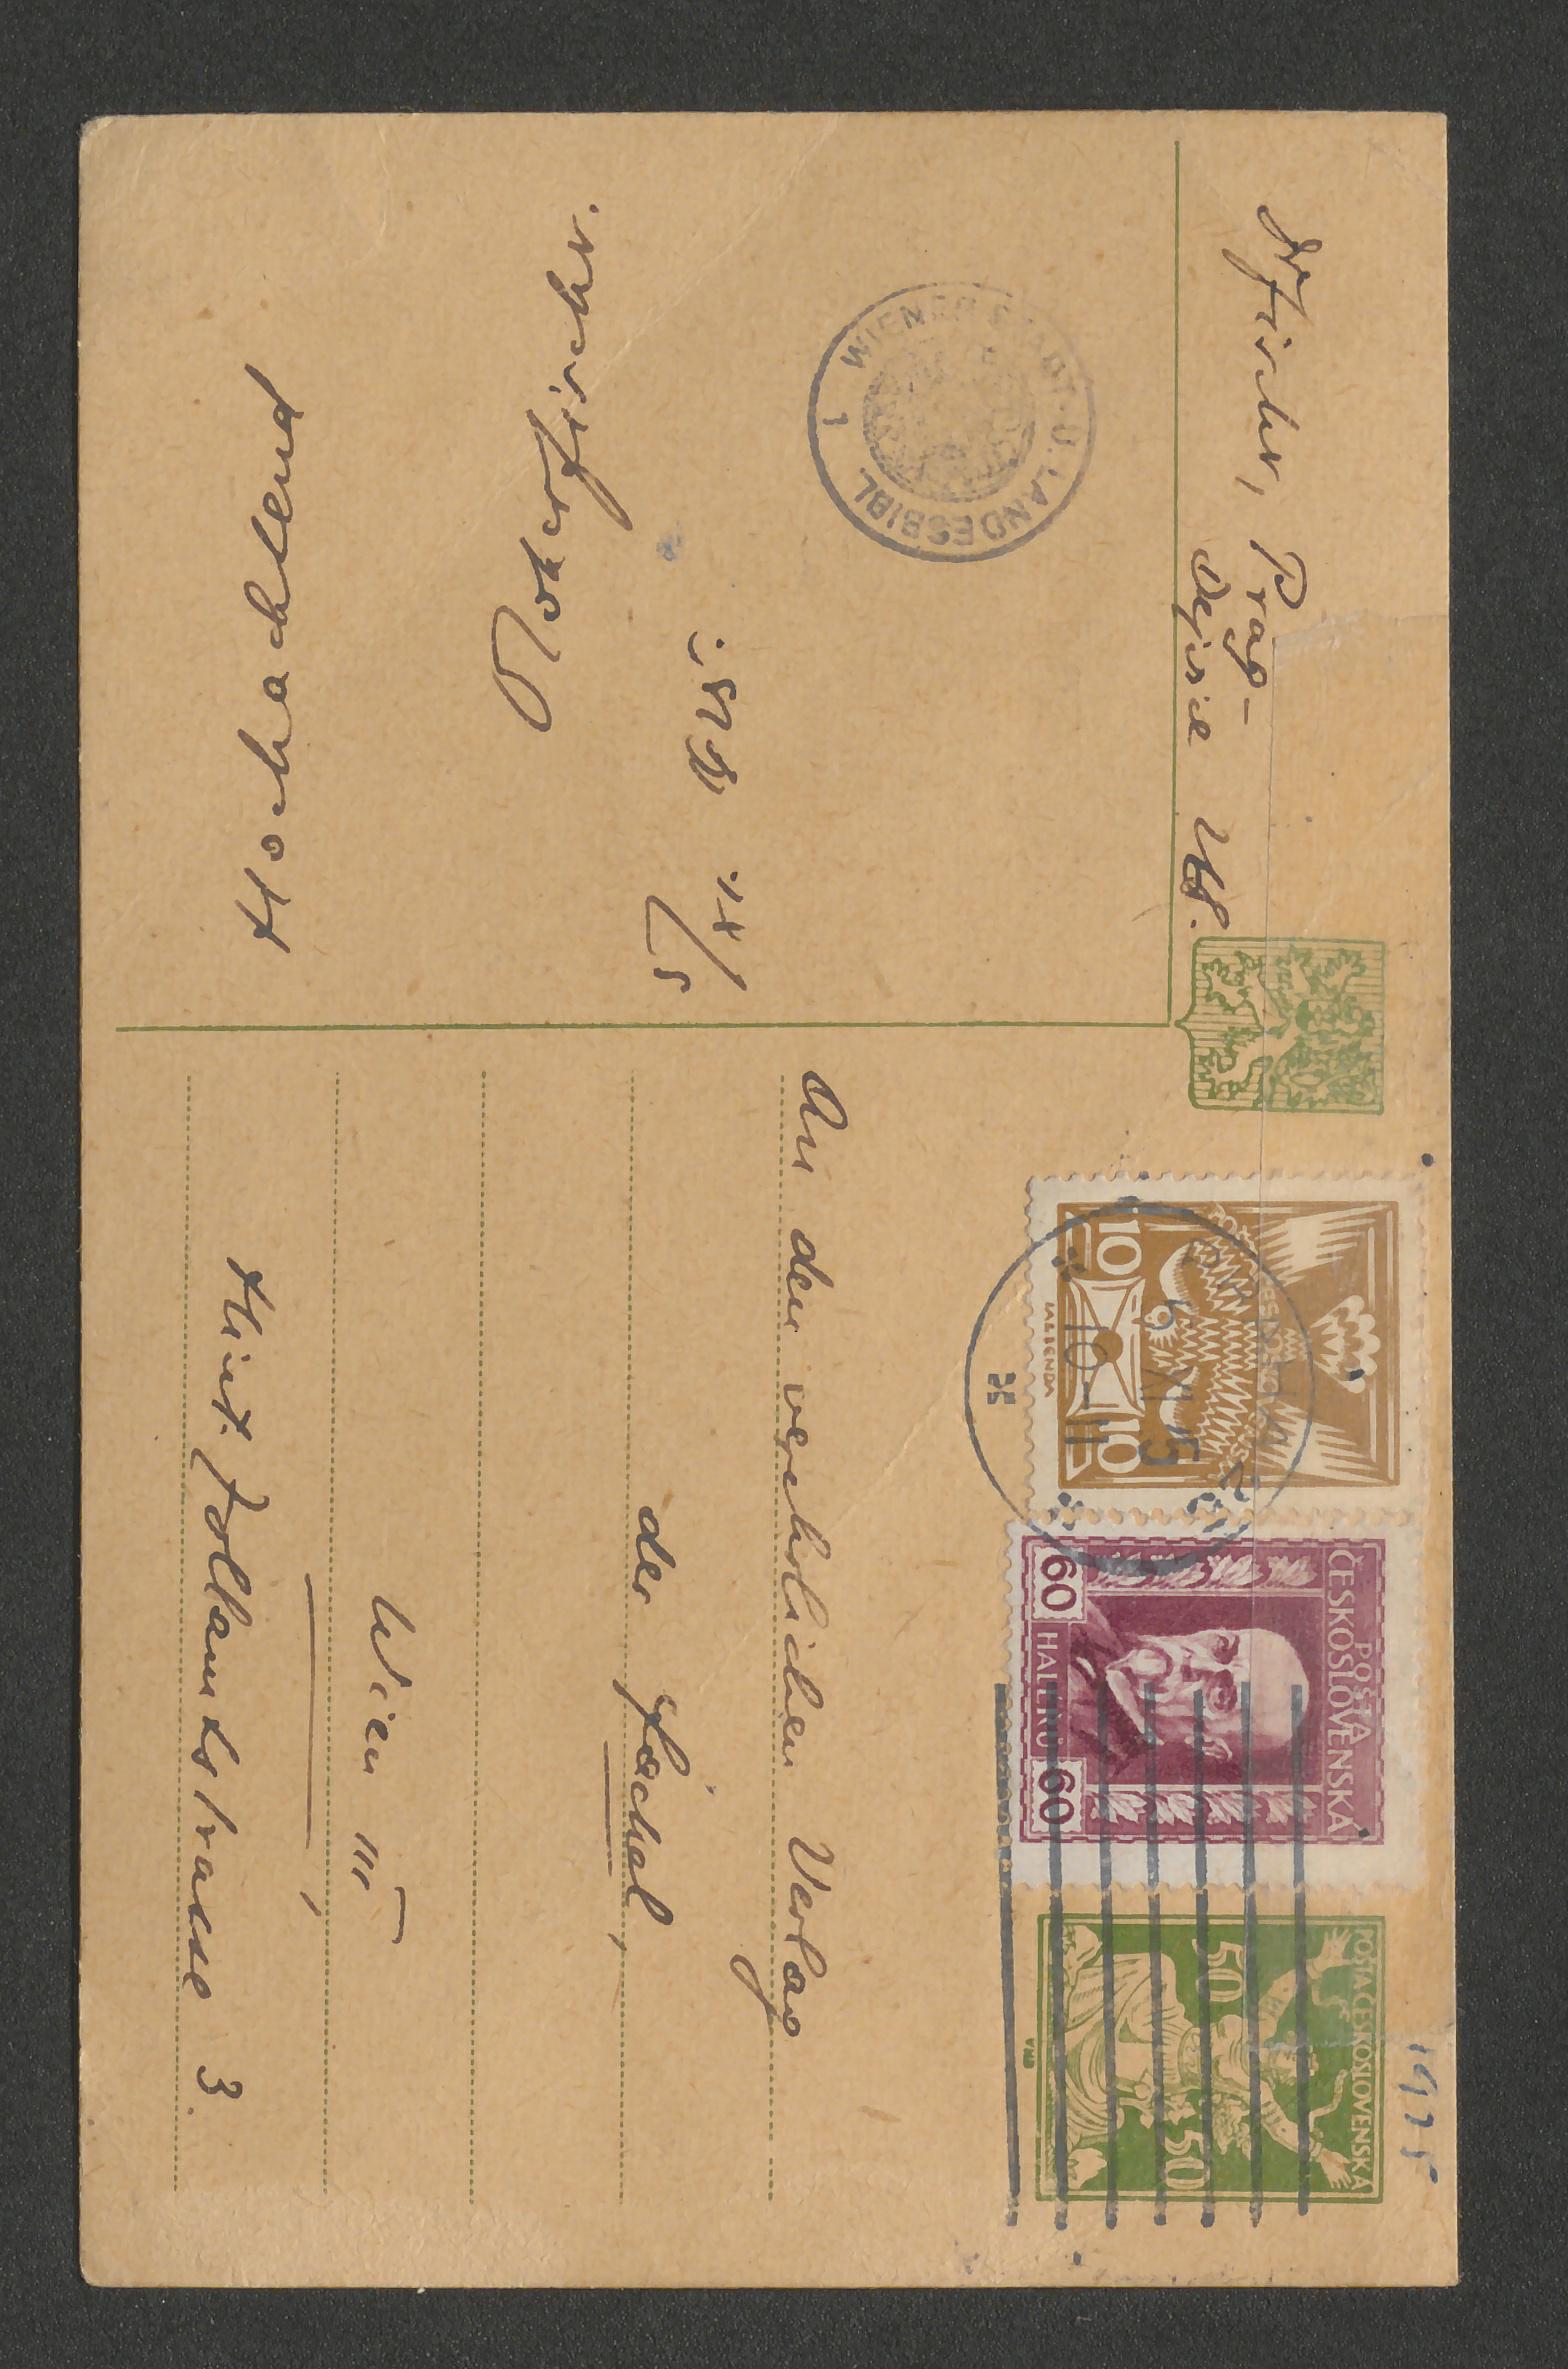 Fischer, Prag-
Dejvice
WIENER STADT-U. LANDESBIBL.
1
Hochachtend
1925
POŠTA ČESKOSLOVENSKÁ
10 10
POŠTA
ČESKOSLOVENSKÁ
60 HALÉŘŮ 60
POŠTA ČESKOSLOVENSKÁ
50 50
10-11
An den verehrlichen Verlag
der Fackel,
Wien III
Hint. Zollamtsstrasse 3.